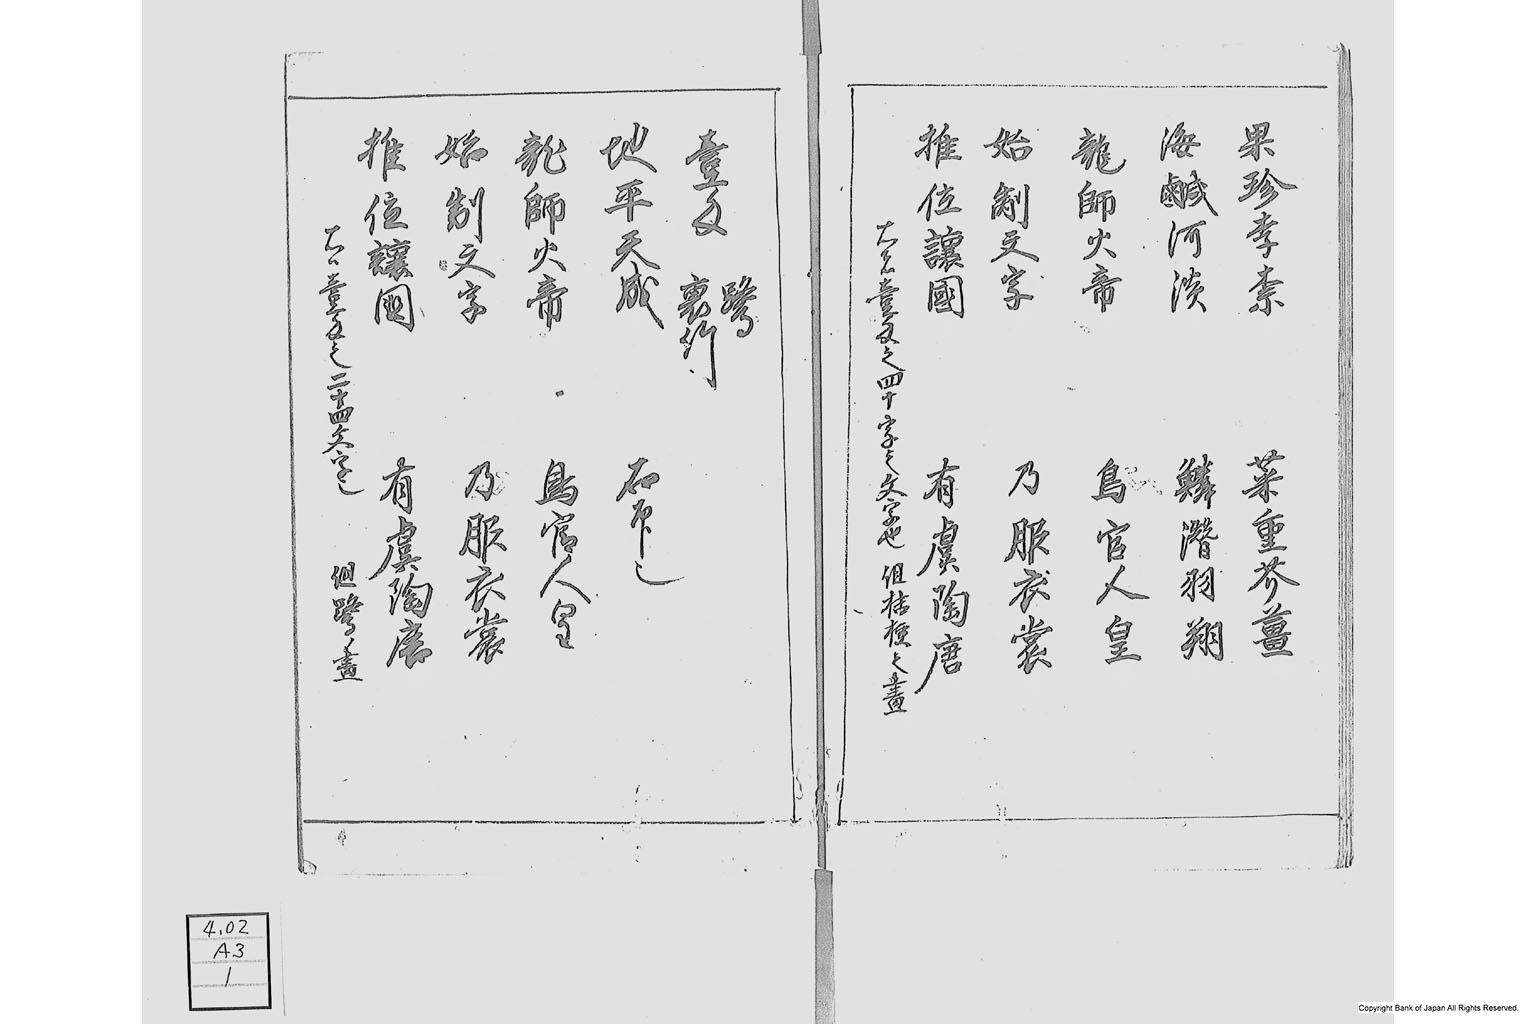 果珍李柰　菜重芥薑
海鹹河淡　鱗潛羽翔
龍師火帝　鳥官人皇
始制文字　乃服衣裳
推位讓國　有虞陶唐
壹文之四十字之文字也　但桔梗之畫
鷺
壹文　裏竹
地平天成
龍師火帝　鳥官人皇
始制文字　乃服衣裳
推位讓國　有虞陶唐
壹文之二十四文字　但鷺ノ畫
4.02
A3
1
Copyright Bank of Japan All Rights Reserved.